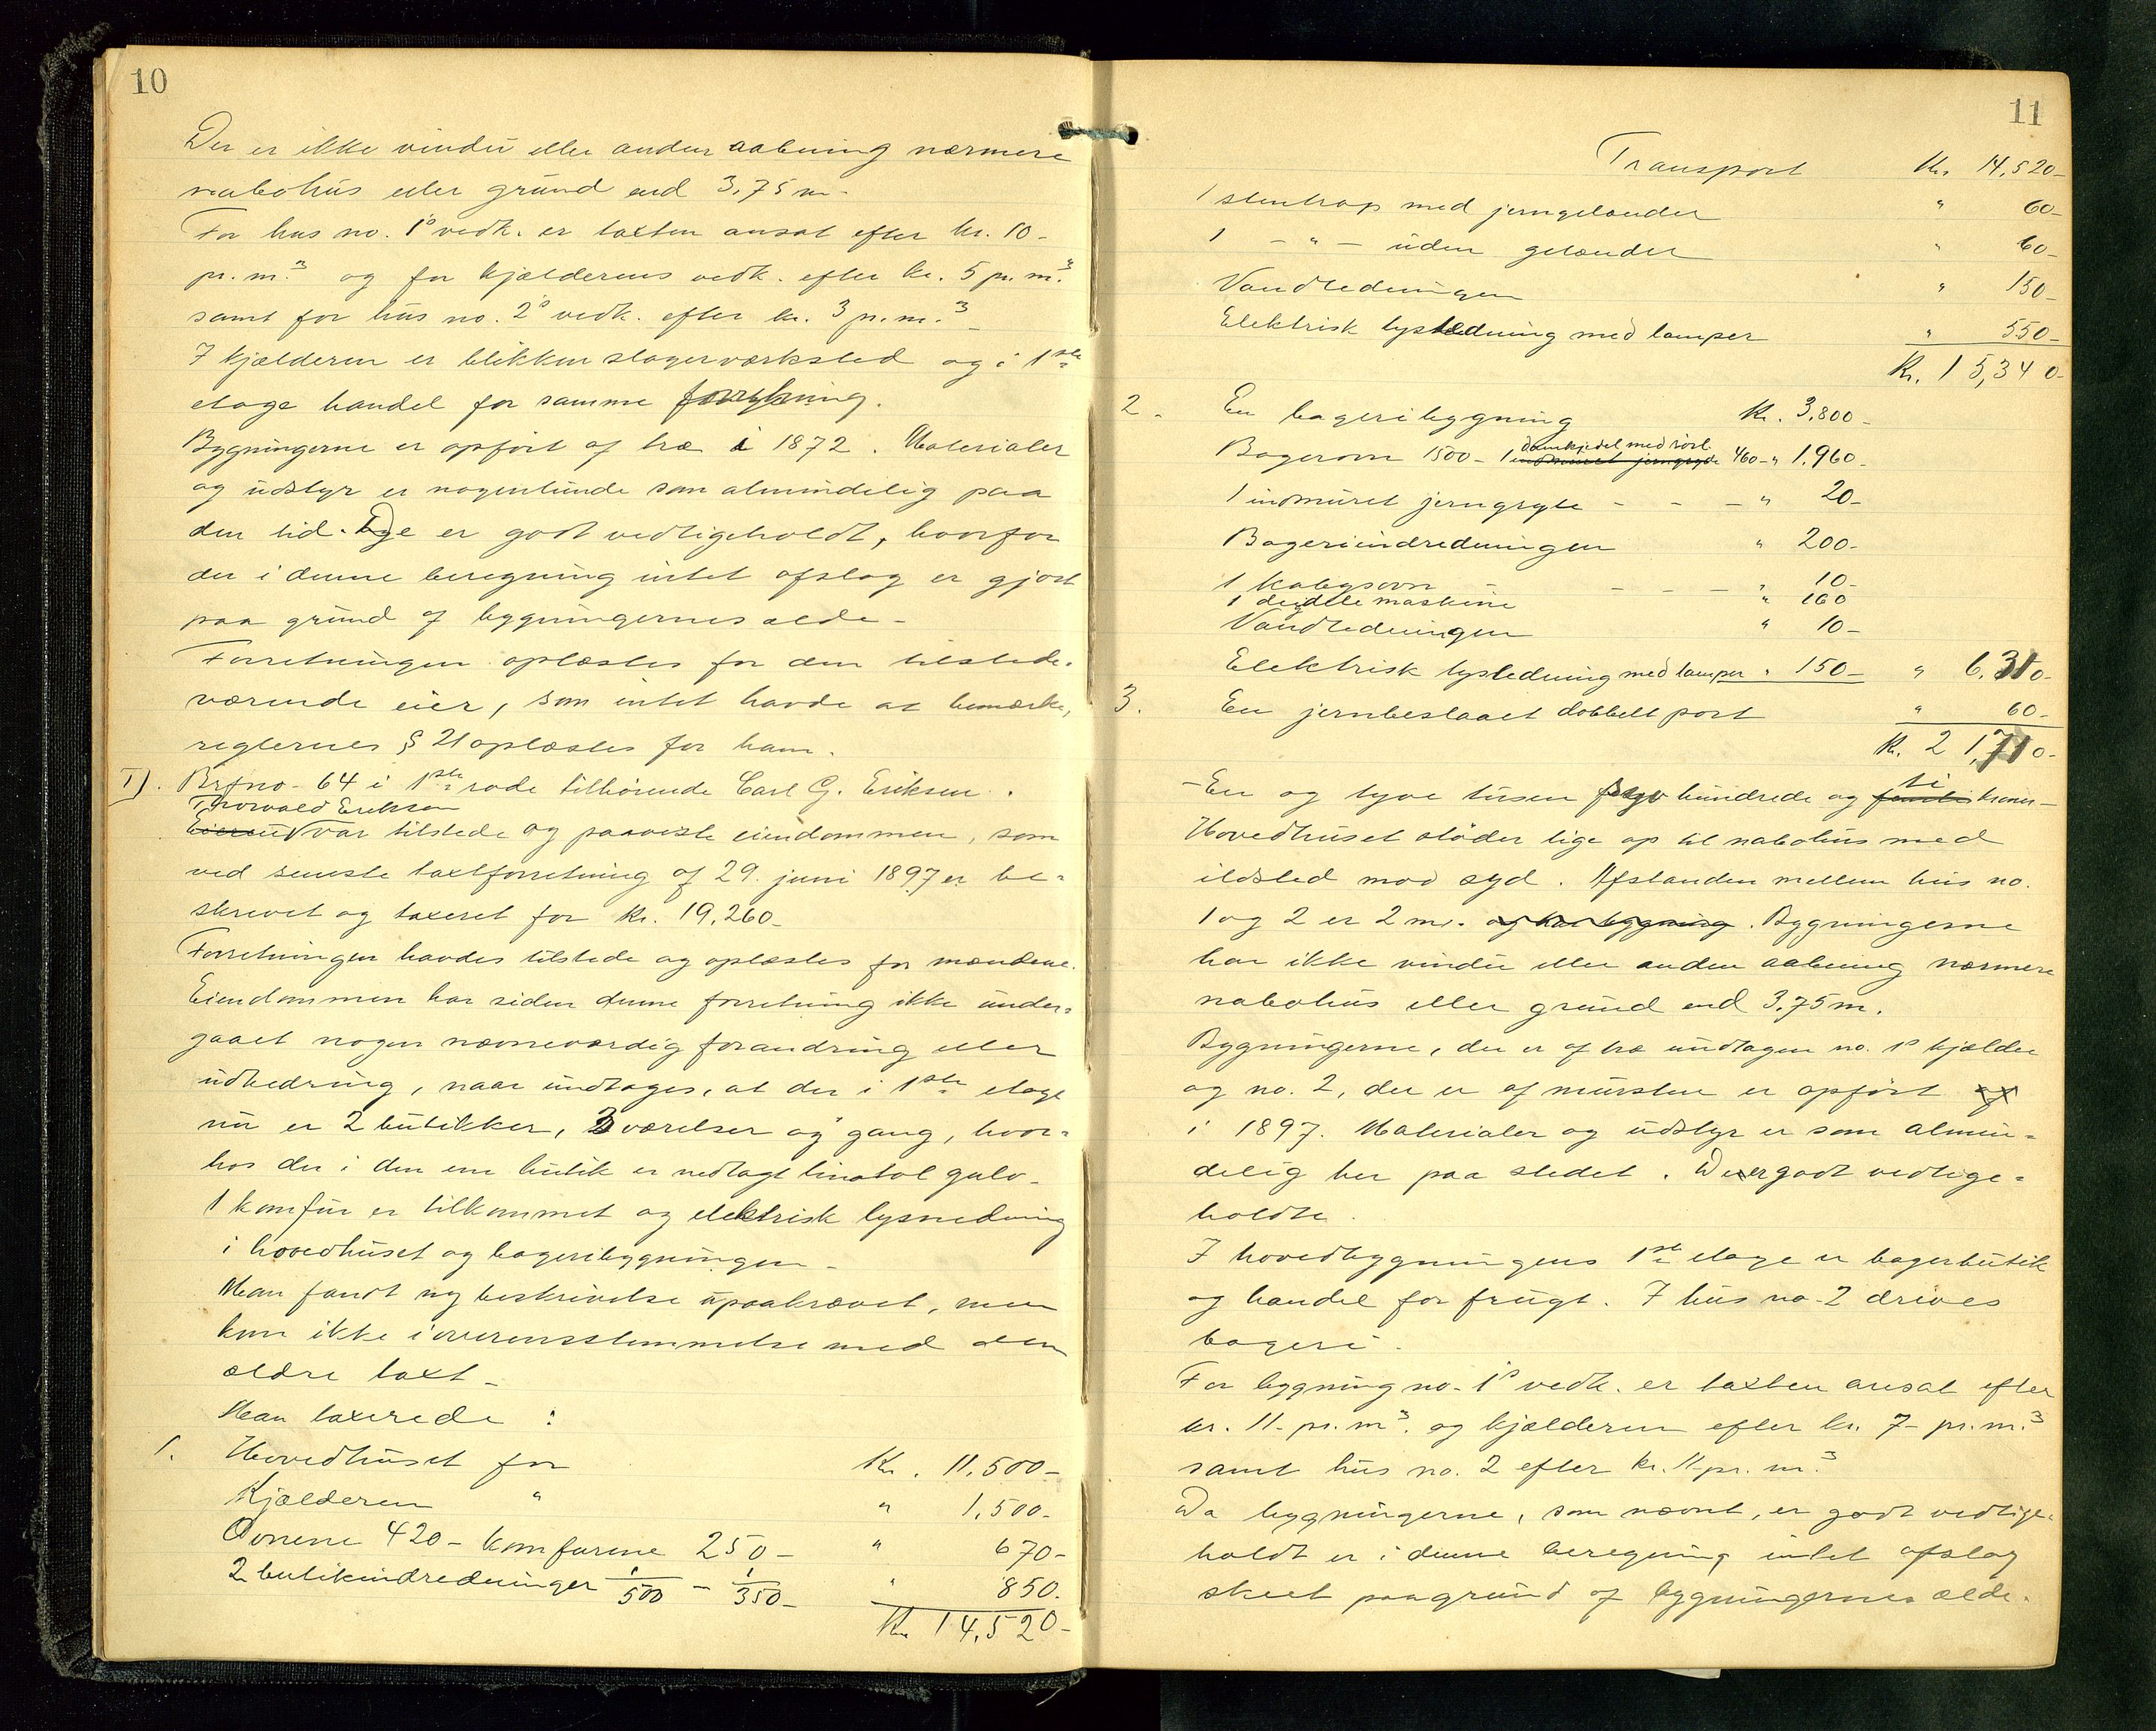 10
Der er ikke vindu eller anden aabning nærmere
nabohus eller grund end 3,75 m.
For hus no. 1° vedk. er taxten ansat efter kr. 10-
pr. m.³ og for kjælderens vedk. efter kr. 5 pr. m.³
samt for hus no. 2° vedk. efter kr. 3 pr. m.³
I kjælderen er blikkenslagerværksted og i 1ste
etage handel for samme forretning.
Bygningerne er opført af træ i 1872. Materialer
og udstyr er nogenlunde som almindelig paa
den tid. De er godt vedligeholdt, hvorfor
der i denne beregning intet afslag er gjort
paa grund af bygningernes ælde-
Forretningen oplæstes for den tilstede-
værende eier, som intet havde at bemærke,
reglernes § 21 oplæstes for ham.
I). Brfno. 64 i 1ste rode tilhørende Carl G. Eriksen.
Thorvald Erikson
Eieren var tilstede og paaviste eiendommen, som
ved seneste taxtforretning af 29. juni 1897 er be-
skrevet og taxeret for kr. 19,260-
Forretningen havdes tilstede og oplæstes for mændene.
Eiendommen har siden denne forretning ikke under-
gaaet nogen nævneværdig forandring eller
udbedring, naar undtages, at der i 1ste etage
nu er 2 butikker, 3 værelser og gang, hvor-
hos der i den ene butik er nedlagt linotol gulv-
1 komfur er tilkommet og elektrisk lysnedning
i hovedhuset og bageribygningen-
Man fandt ny beskrivelse upaakrævet, men
kom ikke i overensstemmelse med den
ældre taxt-
Man taxerede :
1. Hovedhuset for Kr. 11,500-
Kjælderen " " 1,500-
Ovnene 420- komfurene 250- " 670-
2 butikindredninger 1/500 - 1/350- " 850.
Kr. 14,520-
11
Transport Kr. 14,520-
1 stentrap med jerngelænder " 60-
1 - " - uden gelænder " 60-
Vandledningen " 150-
Elektrisk lysledning med lamper " 550-
Kr. 15,340-
2. En bageribygning Kr. 3,800-
dampkjedel med rørl.
Bagerovn 1500- 1 indmuret jerngryde 460- " 1,960-
1 indmuret jerngryte - - - " 20-
Bageriindredningen " 200-
1 kabysovn - - - - " 10-
1 deidele maskine " 160
Vandledningen " 10-
Elektrisk lysledning med lamper " 150- " 6,310-
3. En jernbeslaaet dobbelt port " 60-
Kr. 21,710-
ti
-En og tyve tusen syv hundrede og femti kroner-
Hovedhuset støder lige op til nabohus med
ildsted mod syd. Afstanden mellem hus no.
1 og 2 er 2 m. Bygningerne
har ikke vindu eller anden aabning nærmere
nabohus eller grund end 3,75 m.
Bygningerne, der er af træ undtagen no. 1° kjælder
og no. 2, der er af mursten er opført og
i 1897. Materialer og udstyr er som almin-
delig her paa stedet. De er godt vedlige-
holdte.
I hovedbygningens 1ste etage er bagerbutik
og handel for frugt. I hus no. 2 drives
bageri.
For bygning no. 1° vedk. er taxten ansat efter
kr. 11- pr. m³. og kjælderen efter kr. 7- pr. m.³
samt hus no. 2 efter kr. 11 pr. m.³
Da bygningerne, som nævnt, er godt vedlige-
holdt er i denne beregning intet afslag
skeet paagrund af bygningernes ælde.